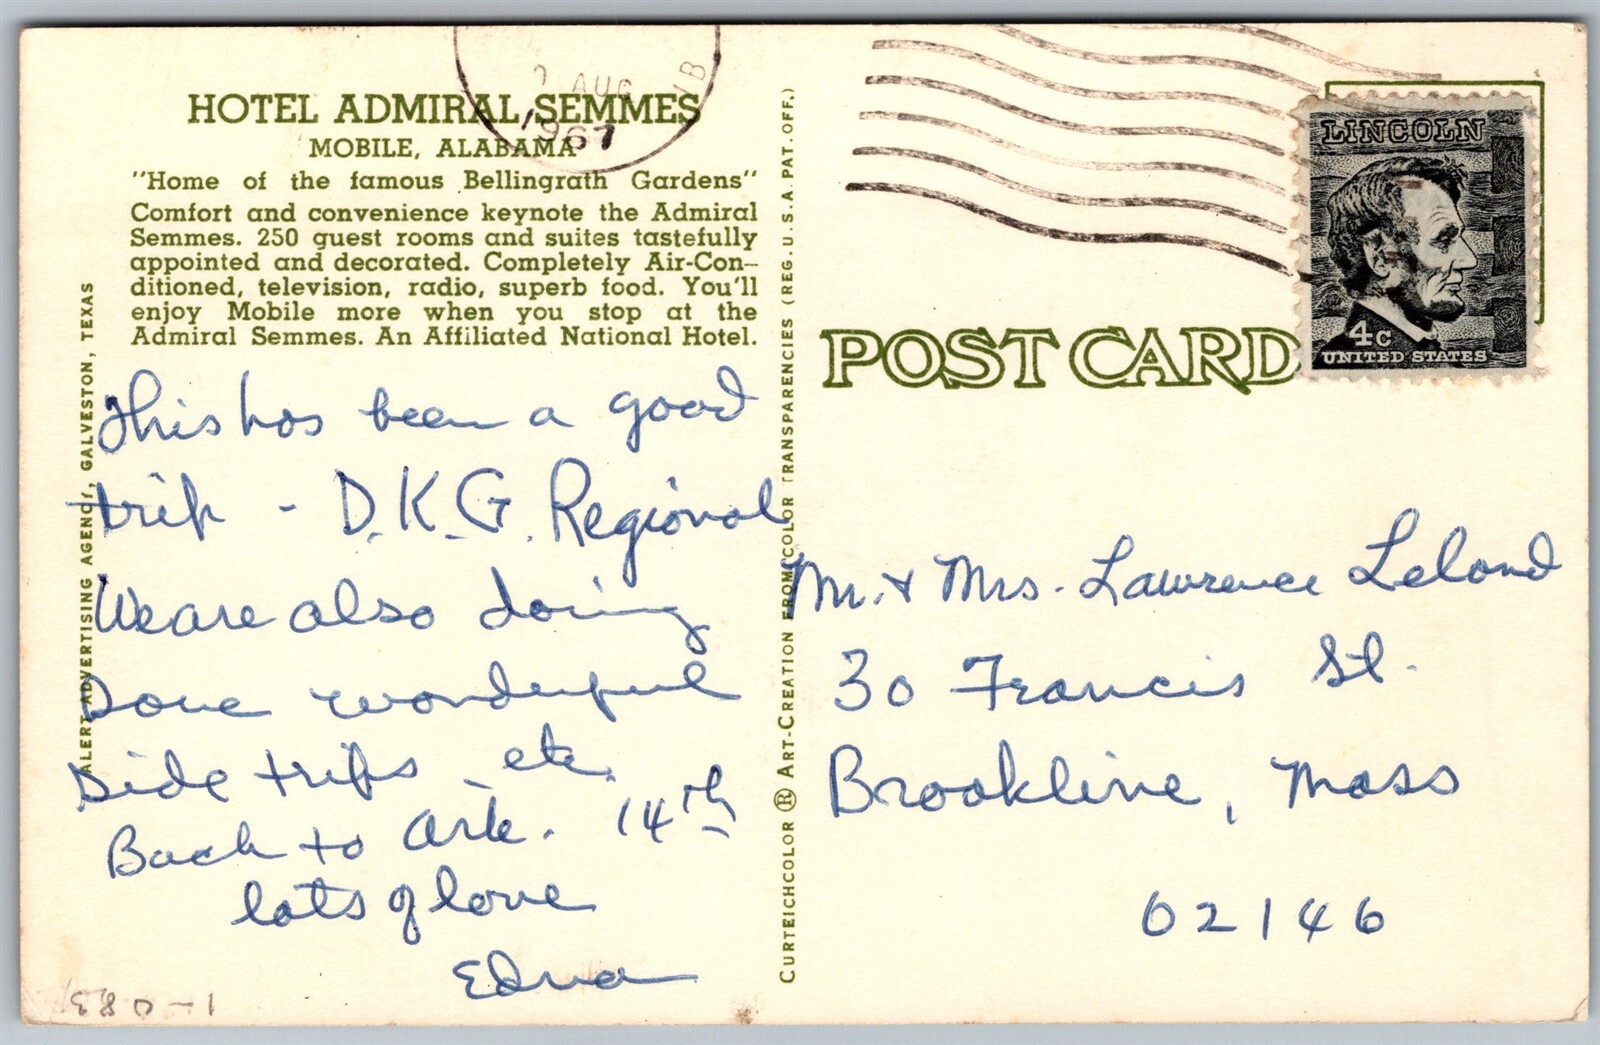 HOTEL ADMIRAL SEMMES
MOBILE, ALABAMA
"Home of the famous Bellingrath Gardens"
Comfort and convenience keynote the Admiral
Semmes. 250 guest rooms and suites tastefully
appointed and decorated. Completely Air-Con-
ditioned, television, radio, superb food. You'll
enjoy Mobile more when you stop at the
Admiral Semmes. An Affiliated National Hotel.
ALERT ADVERTISING AGENCY, GALVESTON, TEXAS
This has been a good
trip - D.K.G. Regional
We are also doing
some wonderful
side trips etc.
Back to Ark. 14th
lots of love
Edna
CURTEICHCOLOR ® ART-CREATION FROM COLOR TRANSPARENCIES (REG. U.S.A. PAT. OFF.)
AUG
1967
LINCOLN
4c
UNITED STATES
POST CARD
Mr. & Mrs. Lawrence Leland
30 Francis St.
Brookline, Mass
02146